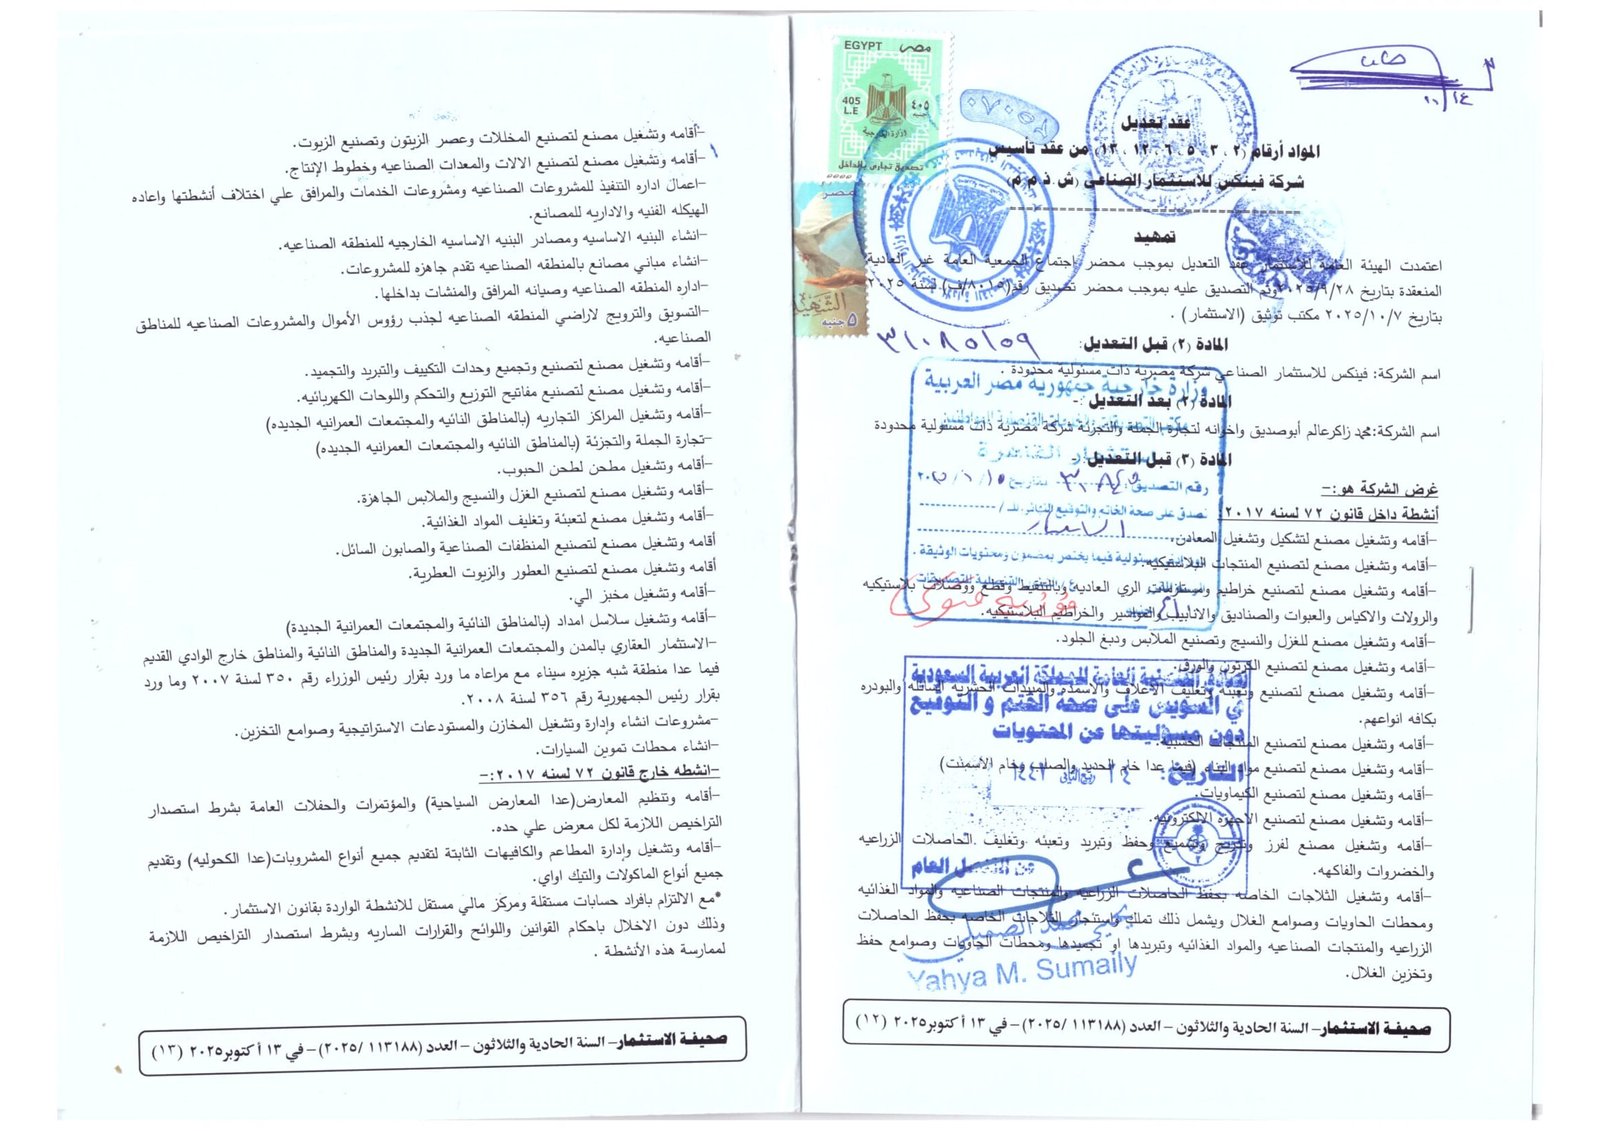 عقد تعديل
المواد أرقام (٢ ، ٣ ، ٥ ، ٦ ، ١٢ ، ١٣) من عقد تأسيس
شركة فينكس للأستثمار الصناعى (ش.ذ.م.م)
تمهيد
اعتمدت الهيئة العامة للاستثمار عقد التعديل بموجب محضر إجتماع الجمعية العامة غير العادية
المنعقدة بتاريخ ٢٠٢٥/٩/٢٨ وتم التصديق عليه بموجب محضر تصديق رقم (٨٠١٥/ف) لسنة ٢٠٢٥
بتاريخ ٢٠٢٥/١٠/٧ مكتب توثيق (الاستثمار) .
المادة (٢) قبل التعديل:
اسم الشركة: فينكس للاستثمار الصناعي شركة مصرية ذات مسئولية محدودة .
المادة (٢) بعد التعديل :-
اسم الشركة: محمد زاكرعالم أبوصديق واخوانه لتجارة الجملة والتجزئة شركة مصرية ذات مسئولية محدودة
المادة (٣) قبل التعديل:
غرض الشركة هو:-
أنشطة داخل قانون ٧٢ لسنه ٢٠١٧
-أقامه وتشغيل مصنع لتشكيل وتشغيل المعادن.
-أقامه وتشغيل مصنع لتصنيع المنتجات البلاستيكيه
-أقامه وتشغيل مصنع لتصنيع خراطيم ومستلزمات الري العاديه وبالتنقيط وقطع ووصلات بلاستيكيه
والرولات والاكياس والعبوات والصناديق والانابيب والمواسير والخراطيم البلاستيكيه.
-أقامه وتشغيل مصنع للغزل والنسيج وتصنيع الملابس ودبغ الجلود.
-أقامه وتشغيل مصنع لتصنيع الكرتون والورق.
-أقامه وتشغيل مصنع لتصنيع وتعبئة وتغليف الاعلاف والاسمده والمبيدات الحشريه السائله والبودره
بكافه انواعهم.
-أقامه وتشغيل مصنع لتصنيع المنتجات الخشبيه.
-أقامه وتشغيل مصنع لتصنيع مواد البناء (فيما عدا خام الحديد والصلب وخام الاسمنت)
-أقامه وتشغيل مصنع لتصنيع الكيماويات.
-أقامه وتشغيل مصنع لتصنيع الاجهزه الالكترونيه.
-أقامه وتشغيل مصنع لفرز وتدريج وتشميع وحفظ وتبريد وتعبئه وتغليف الحاصلات الزراعيه
والخضروات والفاكهه.
-أقامه وتشغيل الثلاجات الخاصه بحفظ الحاصلات الزراعيه والمنتجات الصناعيه والمواد الغذائيه
ومحطات الحاويات وصوامع الغلال ويشمل ذلك تملك واستئجار الثلاجات الخاصه بحفظ الحاصلات
الزراعيه والمنتجات الصناعيه والمواد الغذائيه وتبريدها او تجميدها ومحطات الحاويات وصوامع حفظ
وتخزين الغلال.
صحيفة الاستثمار– السنة الحادية والثلاثون – العدد (١١٣١٨٨ /٢٠٢٥) – في ١٣ أكتوبر٢٠٢٥ (١٢)
EGYPT مصر
405 L.E
٤٠٥ جنيه
وزارة الخارجية
تصديق تجارى بالداخل
مصر
الشهيد
٥ جنيه
٣١٠٨٥١٥٩
وزارة خارجية جمهورية مصر العربية
رقم التصديق:
نصدق على صحة الخاتم والتوقيع
القنصلية العامة للمملكة العربية السعودية
في السويس على صحة الختم و التوقيع
دون مسؤليتها عن المحتويات
التاريخ:
عن القنصل العام
Yahya M. Sumaily
-أقامه وتشغيل مصنع لتصنيع المخللات وعصر الزيتون وتصنيع الزيوت.
-أقامه وتشغيل مصنع لتصنيع الالات والمعدات الصناعيه وخطوط الإنتاج.
-اعمال اداره التنفيذ للمشروعات الصناعيه ومشروعات الخدمات والمرافق علي اختلاف أنشطتها واعاده
الهيكله الفنيه والاداريه للمصانع.
-انشاء البنيه الاساسيه ومصادر البنيه الاساسيه الخارجيه للمنطقه الصناعيه.
-انشاء مباني مصانع بالمنطقه الصناعيه تقدم جاهزه للمشروعات.
-اداره المنطقه الصناعيه وصيانه المرافق والمنشات بداخلها.
-التسويق والترويج لاراضي المنطقه الصناعيه لجذب رؤوس الأموال والمشروعات الصناعيه للمناطق
الصناعيه.
-أقامه وتشغيل مصنع لتصنيع وتجميع وحدات التكييف والتبريد والتجميد.
-أقامه وتشغيل مصنع لتصنيع مفاتيح التوزيع والتحكم واللوحات الكهربائيه.
-أقامه وتشغيل المراكز التجاريه (بالمناطق النائيه والمجتمعات العمرانيه الجديده)
-تجارة الجملة والتجزئة (بالمناطق النائيه والمجتمعات العمرانيه الجديده)
-أقامه وتشغيل مطحن لطحن الحبوب.
-أقامه وتشغيل مصنع لتصنيع الغزل والنسيج والملابس الجاهزة.
-أقامه وتشغيل مصنع لتعبئة وتغليف المواد الغذائية.
أقامه وتشغيل مصنع لتصنيع المنظفات الصناعية والصابون السائل.
أقامه وتشغيل مصنع لتصنيع العطور والزيوت العطرية.
-أقامه وتشغيل مخبز الي.
-أقامه وتشغيل سلاسل امداد (بالمناطق النائية والمجتمعات العمرانية الجديدة)
-الاستثمار العقاري بالمدن والمجتمعات العمرانية الجديدة والمناطق النائية والمناطق خارج الوادي القديم
فيما عدا منطقة شبه جزيره سيناء مع مراعاه ما ورد بقرار رئيس الوزراء رقم ٣٥٠ لسنة ٢٠٠٧ وما ورد
بقرار رئيس الجمهورية رقم ٣٥٦ لسنة ٢٠٠٨.
-مشروعات انشاء وإدارة وتشغيل المخازن والمستودعات الاستراتيجية وصوامع التخزين.
-انشاء محطات تموين السيارات.
-انشطه خارج قانون ٧٢ لسنه ٢٠١٧:-
-أقامه وتنظيم المعارض(عدا المعارض السياحية) والمؤتمرات والحفلات العامة بشرط استصدار
التراخيص اللازمة لكل معرض علي حده.
-أقامه وتشغيل وإدارة المطاعم والكافيهات الثابتة لتقديم جميع أنواع المشروبات(عدا الكحوليه) وتقديم
جميع أنواع الماكولات والتيك اواي.
*مع الالتزام بافراد حسابات مستقلة ومركز مالي مستقل للانشطة الواردة بقانون الاستثمار .
وذلك دون الاخلال باحكام القوانين واللوائح والقرارات الساريه وبشرط استصدار التراخيص اللازمة
لممارسة هذه الأنشطة .
صحيفة الاستثمار– السنة الحادية والثلاثون – العدد (١١٣١٨٨ /٢٠٢٥) – في ١٣ أكتوبر٢٠٢٥ (١٣)